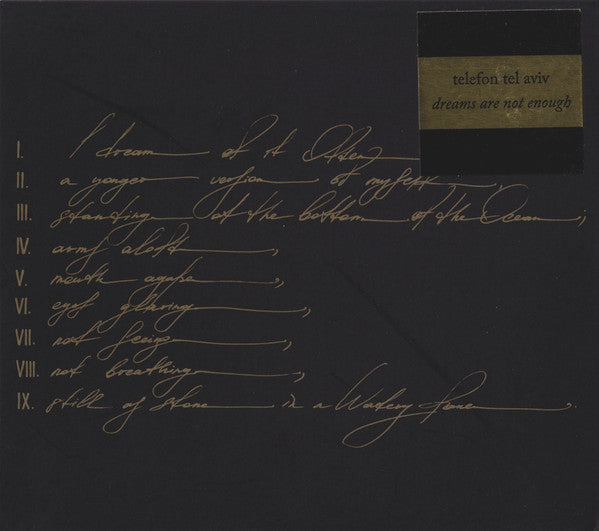 telefon tel aviv
dreams are not enough
I. I dream of it Often
II. a younger version of myself,
III. standing at the bottom of the Ocean;
IV. arms aloft,
V. mouth agape,
VI. eyes glaring,
VII. not seeing,
VIII. not breathing,
IX. still as stone in a Watery Fane.